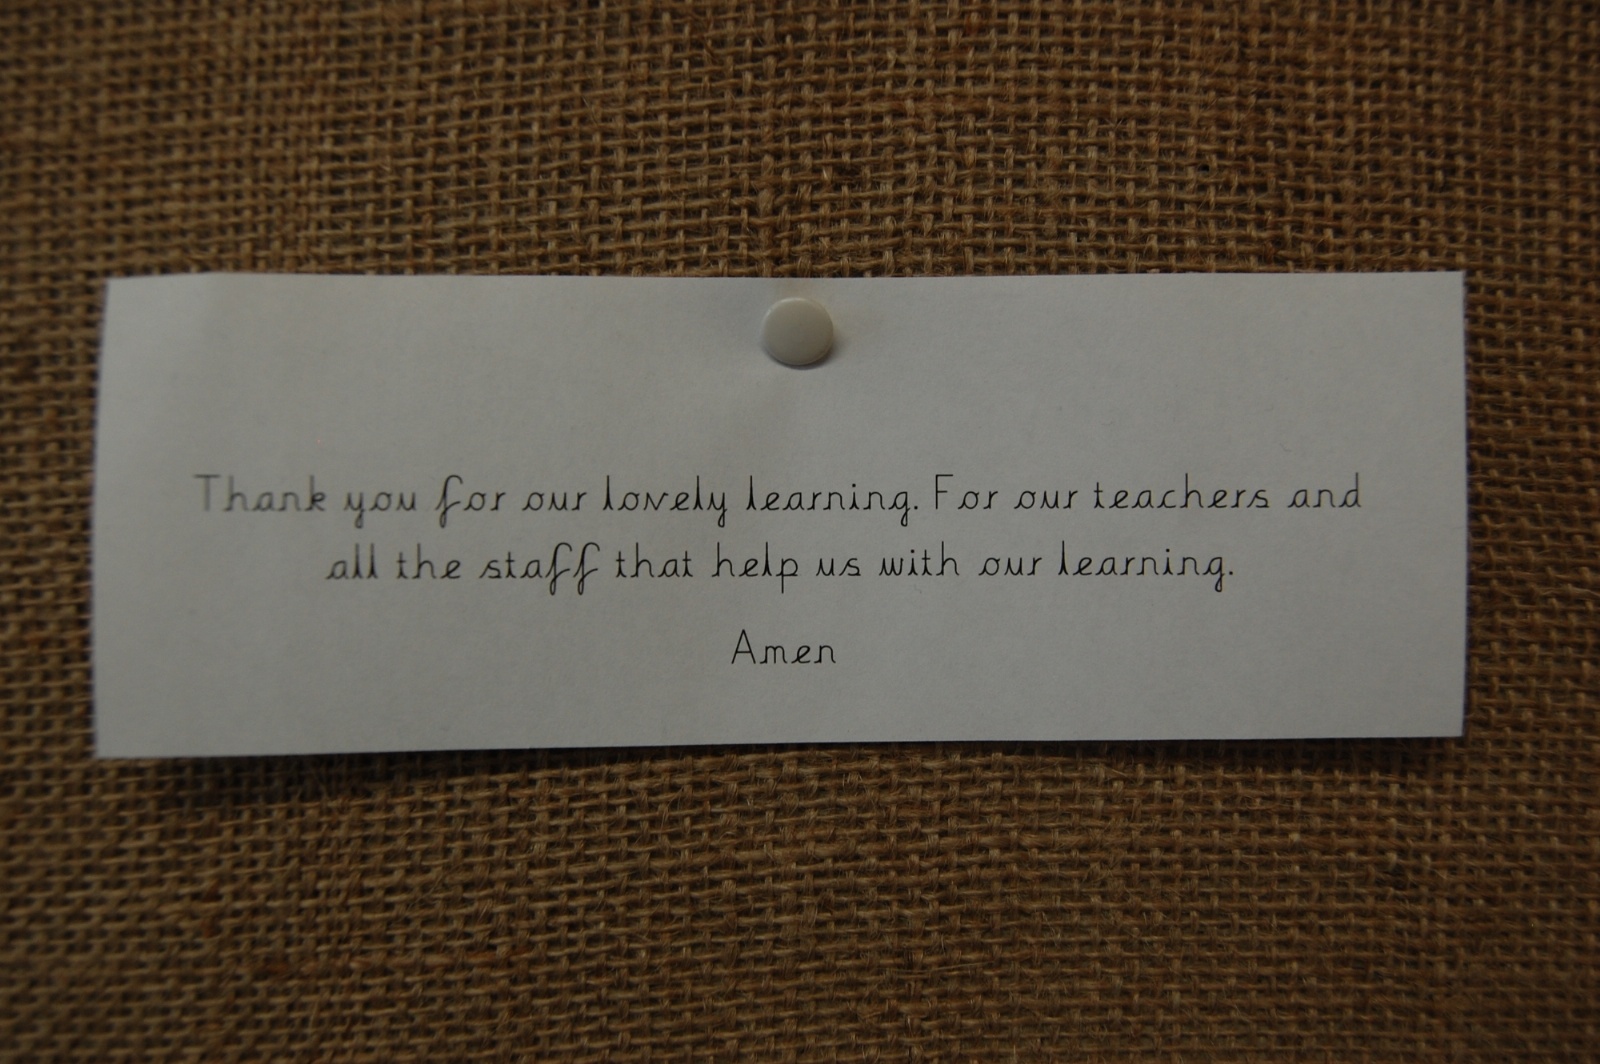 Thank you for our lovely learning. For our teachers and
all the staff that help us with our learning.
Amen